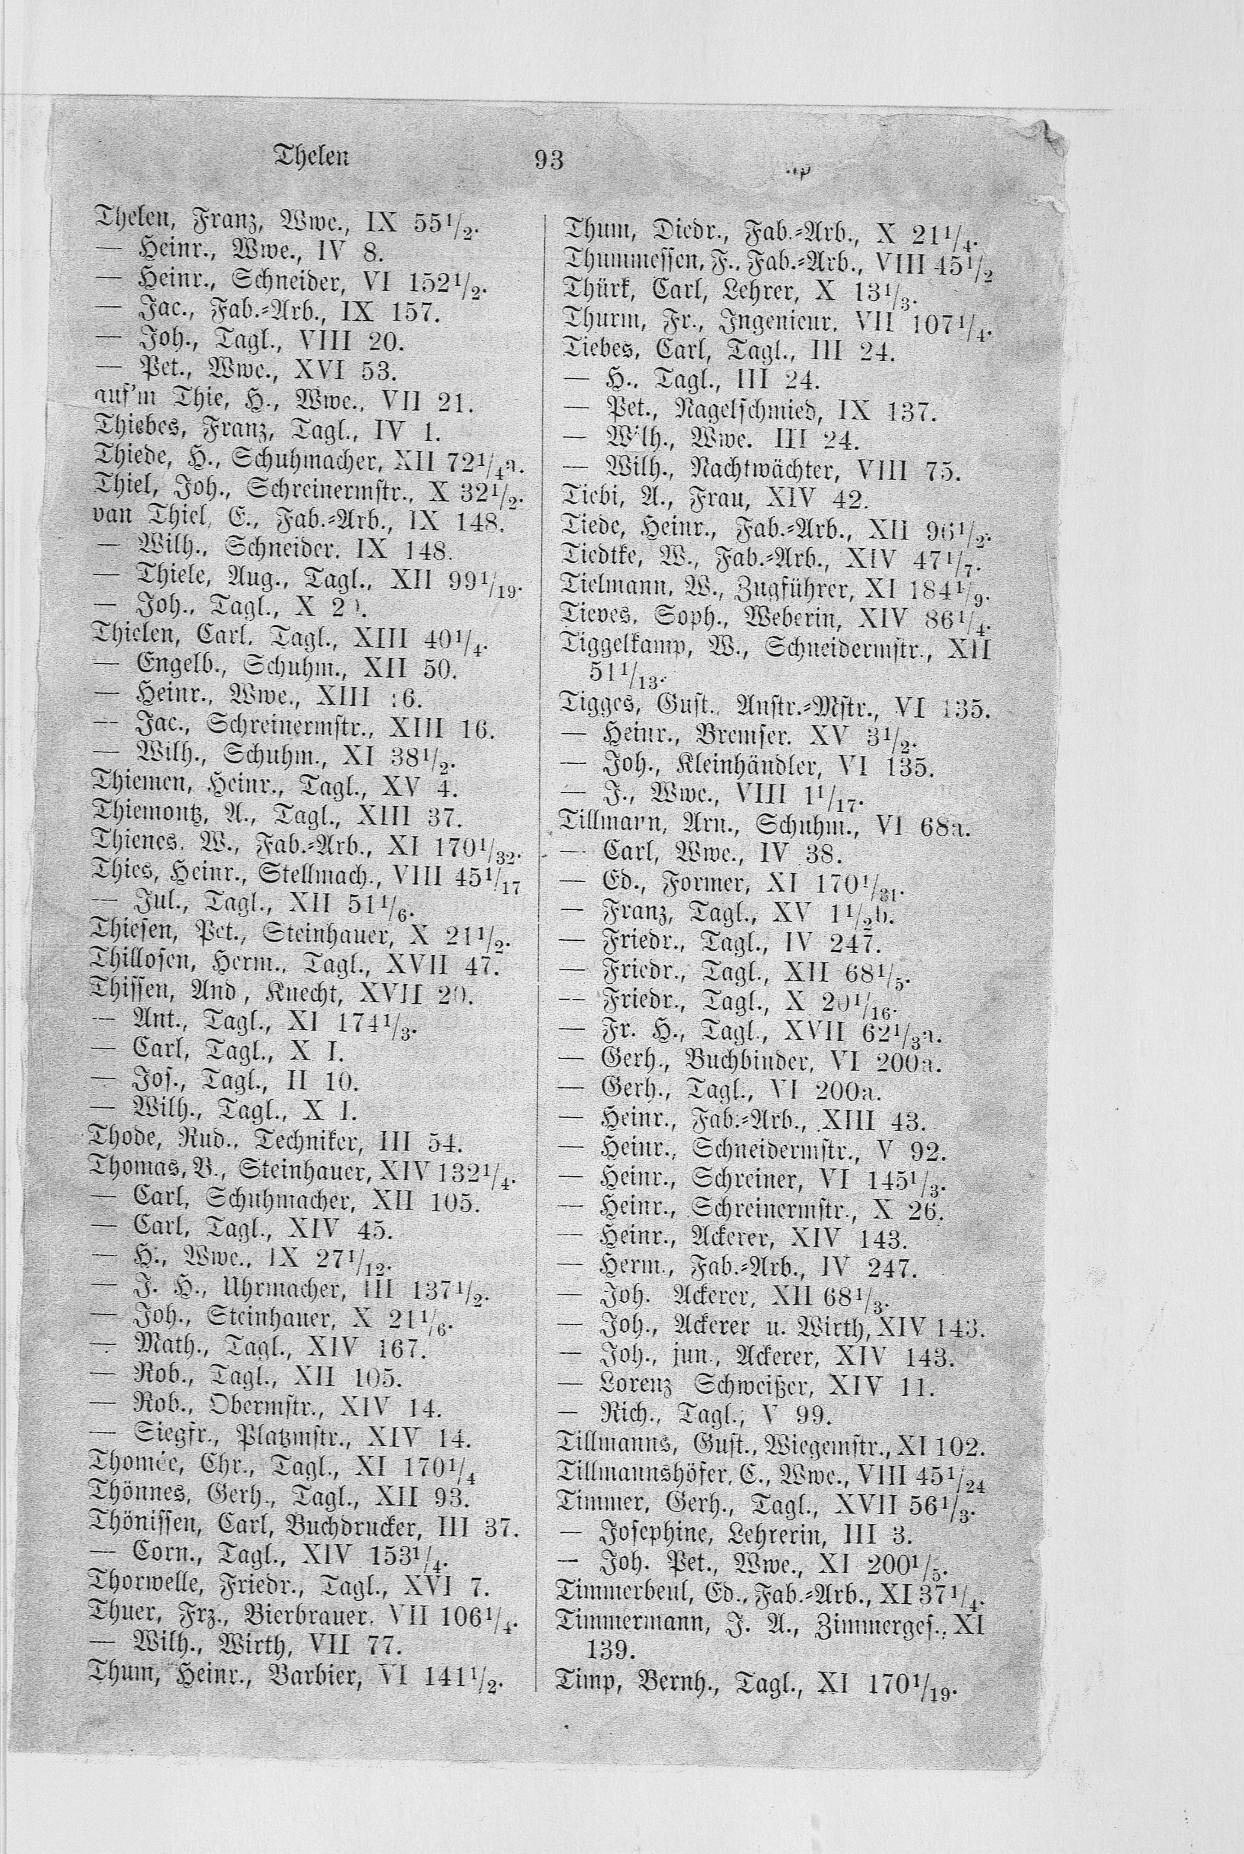 Thelen 93 Tip
Thelen, Franz, Wwe., IX 55 1/2.
— Heinr., Wwe., IV 8.
— Heinr., Schneider, VI 152 1/2.
— Jac., Fab.-Arb., IX 157.
— Joh., Tagl., VIII 20.
— Pet., Wwe., XVI 53.
auf'm Thie, H., Wwe., VII 21.
Thiebes, Franz, Tagl., IV 1.
Thiede, H., Schuhmacher, XII 72 1/4a.
Thiel, Joh., Schreinermstr., X 32 1/2.
van Thiel, E., Fab.-Arb., IX 148.
— Wilh., Schneider. IX 148.
— Thiele, Aug., Tagl., XII 99 1/19.
— Joh., Tagl., X
Thielen, Carl, Tagl., XIII 40 1/4.
— Engelb., Schuhm., XII 50.
— Heinr., Wwe., XIII
— Jac., Schreinermstr., XIII 16.
— Wilh., Schuhm., XI 38 1/2.
Thiemen, Heinr., Tagl., XV 4.
Thiemontz, A., Tagl., XIII 37.
Thienes, W., Fab.-Arb., XI 170 1/32.
Thies, Heinr., Stellmach., VIII 45 1/17
— Jul., Tagl., XII 51 1/6.
Thiesen, Pet., Steinhauer, X 21 1/2.
Thillosen, Herm., Tagl., XVII 47.
Thissen, And, Knecht, XVII 20.
— Ant., Tagl., XI 174 1/3.
— Carl, Tagl., X I.
— Jos., Tagl., II 10.
— Wilh., Tagl., X I.
Thode, Rud., Techniker, III 54.
Thomas, B., Steinhauer, XIV 132 1/4.
— Carl, Schuhmacher, XII 105.
— Carl, Tagl., XIV 45.
— H., Wwe., IX 27 1/12.
— J. H., Uhrmacher, III 137 1/2.
— Joh., Steinhauer, X 21 1/6.
— Math., Tagl., XIV 167.
— Rob., Tagl., XII 105.
— Rob., Obermstr., XIV 14.
— Siegfr., Platzmstr., XIV 14.
Thomée, Chr., Tagl., XI 170 1/4
Thönnes, Gerh., Tagl., XII 93.
Thönissen, Carl, Buchdrucker, III 37.
— Corn., Tagl., XIV 153 1/4.
Thorwelle, Friedr., Tagl., XVI 7.
Thuer, Frz., Bierbrauer, VII 106 1/4.
— Wilh., Wirth, VII 77.
Thum, Heinr., Barbier, VI 141 1/2.
Thum, Diedr., Fab.-Arb., X 21 1/4.
Thummessen, F., Fab.-Arb., VIII 45 1/2
Thürk, Carl, Lehrer, X 13 1/3.
Thurm, Fr., Ingenieur, VII 107 1/4.
Tiebes, Carl, Tagl., III 24.
— H., Tagl., III 24.
— Pet., Nagelschmied, IX 137.
— Wilh., Wwe. III 24.
— Wilh., Nachtwächter, VIII 75.
Tiebi, A., Frau, XIV 42.
Tiede, Heinr., Fab.-Arb., XII 96 1/2.
Tiedtke, W., Fab.-Arb., XIV 47 1/7.
Tielmann, W., Zugführer, XI 184 1/9.
Tieves, Soph., Weberin, XIV 86 1/4.
Tiggelkamp, W., Schneidermstr., XII
51 1/13.
Tigges, Gust., Anstr.-Mstr., VI 135.
— Heinr., Bremser. XV 3 1/2.
— Joh., Kleinhändler, VI 135.
— J., Wwe., VIII 1 1/17.
Tillmann, Arn., Schuhm., VI 68a.
— Carl, Wwe., IV 38.
— Ed., Former, XI 170 1/31.
— Franz, Tagl., XV 1 1/2b.
— Friedr., Tagl., IV 247.
— Friedr., Tagl., XII 68 1/5.
— Friedr., Tagl., X 20 1/16.
— Fr. H., Tagl., XVII 62 1/3a.
— Gerh., Buchbinder, VI 200a.
— Gerh., Tagl., VI 200a.
— Heinr., Fab.-Arb., XIII 43.
— Heinr., Schneidermstr., V 92.
— Heinr., Schreiner, VI 145 1/3.
— Heinr., Schreinermstr., X 26.
— Heinr., Ackerer, XIV 143.
— Herm., Fab.-Arb., IV 247.
— Joh. Ackerer, XII 68 1/3.
— Joh., Ackerer u. Wirth, XIV 143.
— Joh., jun., Ackerer, XIV 143.
— Lorenz Schweißer, XIV 11.
— Rich., Tagl., V 99.
Tillmanns, Gust., Wiegemstr., XI 102.
Tillmannshöfer, C., Wwe., VIII 45 1/24
Timmer, Gerh., Tagl., XVII 56 1/3.
— Josephine, Lehrerin, III 3.
— Joh. Pet., Wwe., XI 200 1/5.
Timmerbeul, Ed., Fab.-Arb., XI 37 1/4.
Timmermann, J. A., Zimmerges., XI
139.
Timp, Bernh., Tagl., XI 170 1/19.